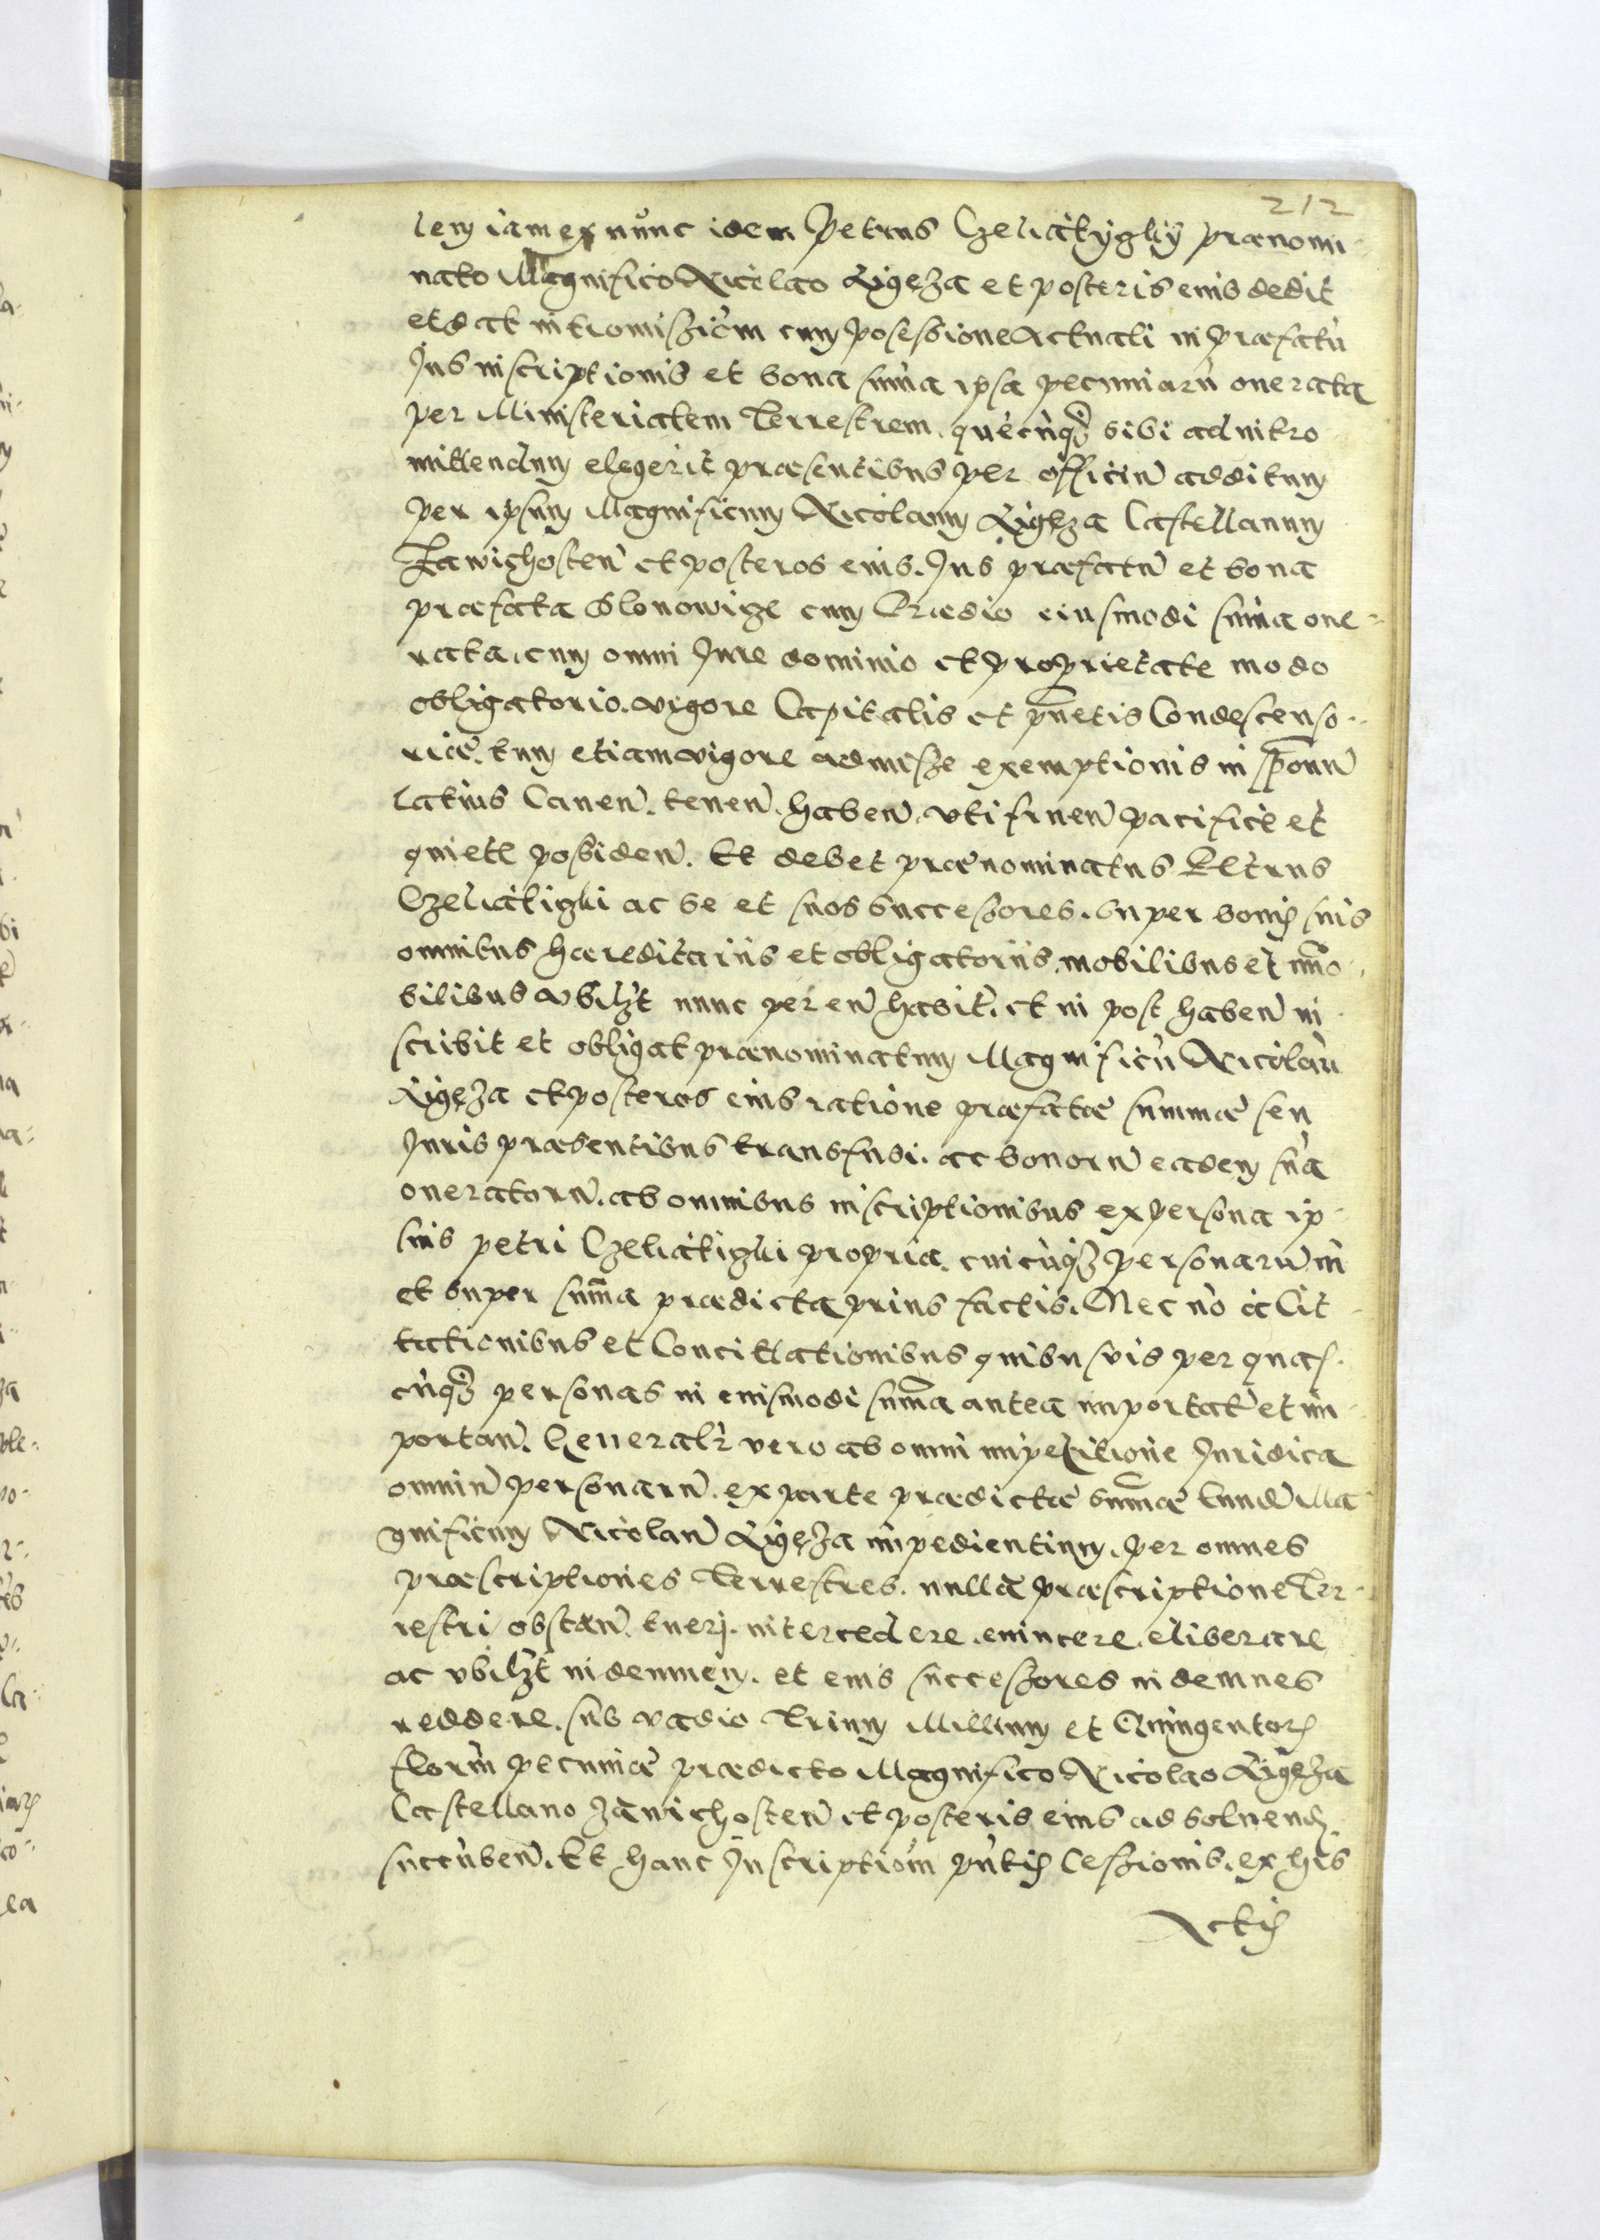 212
lem iam ex nunc idem Petrus Czeliatygkÿ prænomi-
nato Magnifico Nicolao Ligęza et posteris eius dedit
et dat intromissiom̄ cum posessione Actuali in præfatū
Jus inscriptionis et bona sum̄a ipsa pecuniarū onerata
per Ministerialem Terrestrem. quēcūqꝫ sibi ad intro
mittendum elegerit præsentibus per officiū additum
per ipsum Magnificum Nicolaum Ligęza Castellanum
Zawichosteñ et posteros eius. Jus præfatū et bona
præfata cum Prædio eiusmodi sum̄a one-
rata. cum omni Jure dominio et proprietate modo
obligatorio. vigore Capitalis et pñtis Condescenso-
riæ. tum etiam vigore admissæ exemptionis in
latius Caneñ. teneñ. habeñ. vtifrueñ pacifice et
quiete possideñ. Et debet prænominatus Petrus
Czeliatigki ac se et suos successores. super bonis suis
omnibus hæreditariis et obligatoriis. mobilibus et im̄o-
bilibus vbilꝫt nunc per eū habit̄. et in post habeñ in-
scribit et obligat prænominatum Magnificū Nicolaū
Ligęza et posteros eius ratione præfatæ summæ seu
Juris præsentibus transfusi. ac bonorū eadem sum̄a
oneratorū. ab omnibus inscriptionibus ex persona ip-
sius petri Czeliatigki propria. cuicūqꝫ personarū in
et super sum̄a prædicta prius factis. Nec nō a Cit-
tationibus et Concittationibus quibusvis per quas-
cūqꝫ personas in eiusmodi sum̄a antea importat̄ et im-
portañ. Generalr̄ vero ab omni impetitione Juridica
omniū personarū. ex parte prædictæ sum̄æ Eund̄ Ma
gnificum Nicolaū Ligęza impedientium. per omnes
præscriptiones Terrestres. nulla præscriptione Ter-
restri obstañ. tueri. intercedere. euincere. eliberare
ac vbilꝫt indemnem. et eius successores indemnes
reddere. sub vadio Trium Millium et Quingentorꝫ
florm̄ pecuniæ prædicto Magnifico Nicolao Ligęza
Castellano Zawichosteñ et posteris eius ad soluend.
succūbeñ. Et hanc Inscriptiom̄ pñtis Cessionis. ex his
Actis